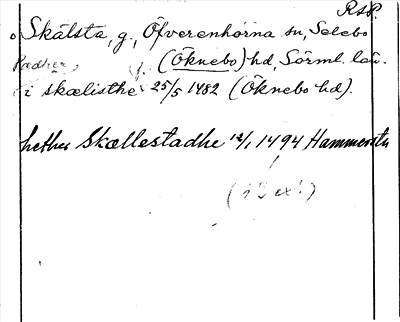 RsP.
Skälsta, g., Öfverenhörna sn, Selebo
(Öknebo) hd, Sörml. län.
i skælisthe 25/5 1482 (Öknebo hd).
hethes Skællestadhe 12/1 1494 Hammersta
(i 3 ex!)